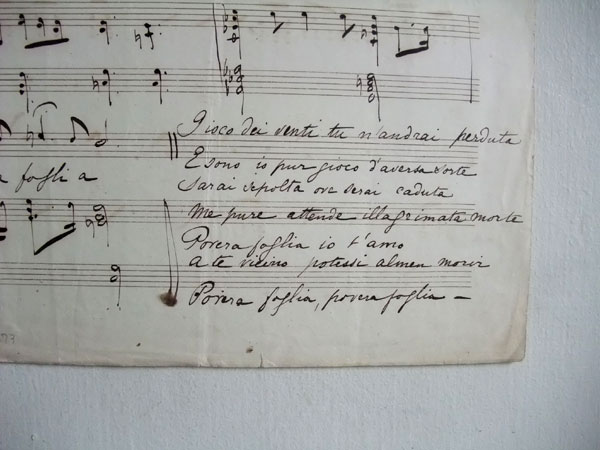 Gioco dei venti tu n'andrai perduta
E sono io pur gioco d'aversa sorte
a foglia
Sarai sepolta ove serai caduta
Me pure attende illagrimata morte
Povera foglia io t'amo
a te vicino potessi almen morir
Povera foglia, povera foglia —